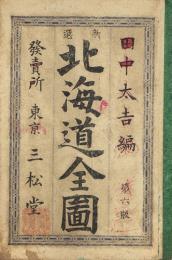 新選
田中太吉編
第六版
北海道全圖
發賣所 東京 三松堂